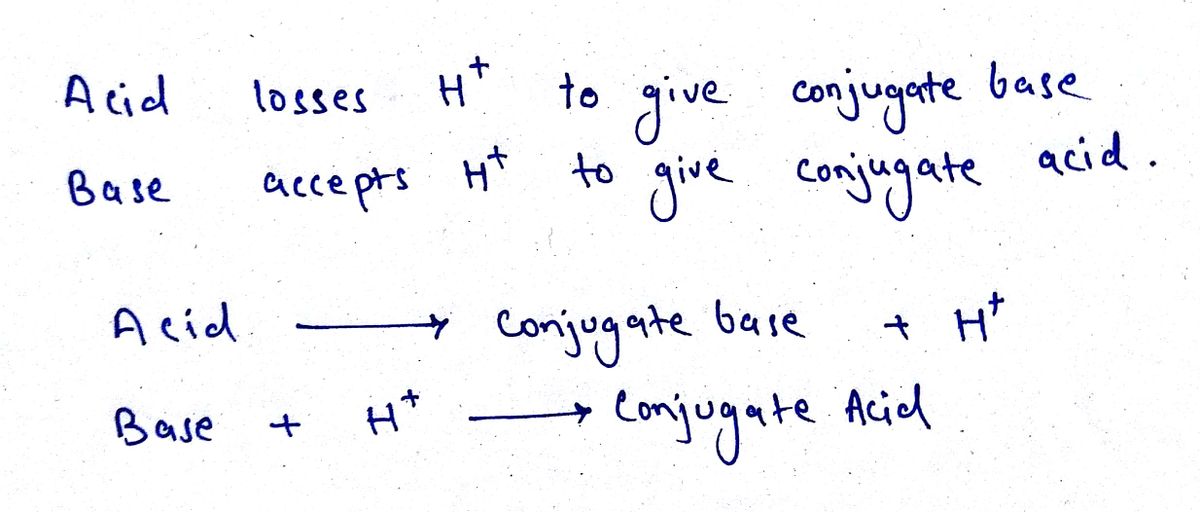 Acid losses H⁺ to give conjugate base
Base accepts H⁺ to give conjugate acid.
Acid ⟶ Conjugate base + H⁺
Base + H⁺ ⟶ Conjugate Acid